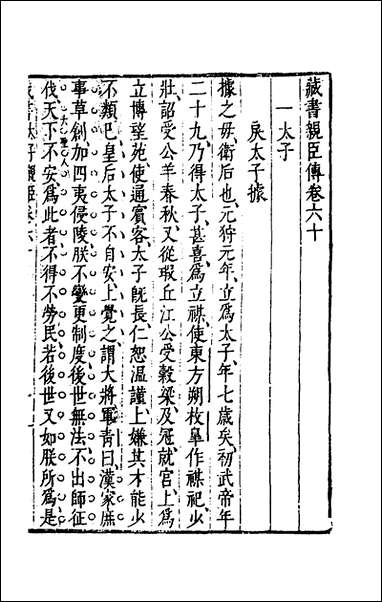 藏書親臣傳卷六十
一太子
戾太子據
據之母衛后也元狩元年立爲太子年七歲矣初武帝年
二十九乃得太子甚喜爲立禖使東方朔枚皐作禖祀少
壯詔受公羊春秋又從瑕丘江公受穀梁及冠就宮上爲
立博望苑使通賓客太子旣長仁恕溫謹上嫌其才能少
不類已皇后太子不自安上覺之謂大將軍青曰漢家庶
事草創加四夷侵陵朕不變更制度後世無法不出師征
伐天下不安爲此者不得不勞民若後世又如朕所爲是